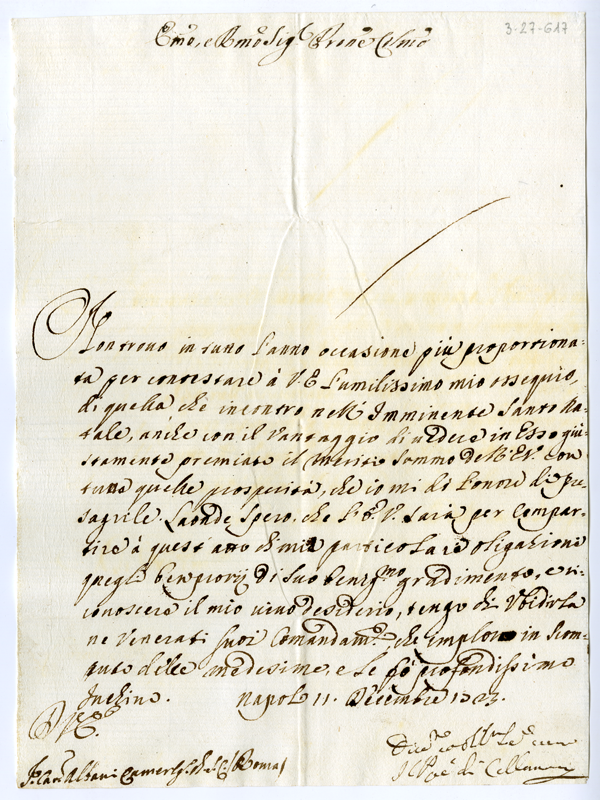 3-27-617
Emo, e Rmo Sigr Prone Colmo
Non trovo in tutto l'anno occasione più proportiona-
ta per contestare à V E l'umilissimo mio ossequio,
di quella che incontro nell' Imminente Santo Na-
tale, anche con il vantaggio di vedere in Esso giu-
stamente premiato il merito sommo dell' E.V. con
tutte quelle prosperità, che io mi dò l'onore di pre-
sagirle. Laonde spero, che l'E. V. sarà per compar-
tire à quest' atto di mia particolare obligazione
quegl' ben proprij di suo benigmo gradimento, e ri-
conoscere il mio vivo desiderio, tengo di Vbidirla
ne Venerati suoi Comandam.ti che imploro in
delle medesime, e le fò profondissimo
Inchino. Napoli 11. Decembre 1723.
D V E.
Sr Carl Albani Camerlgo di S. C. Roma
di Cellamare